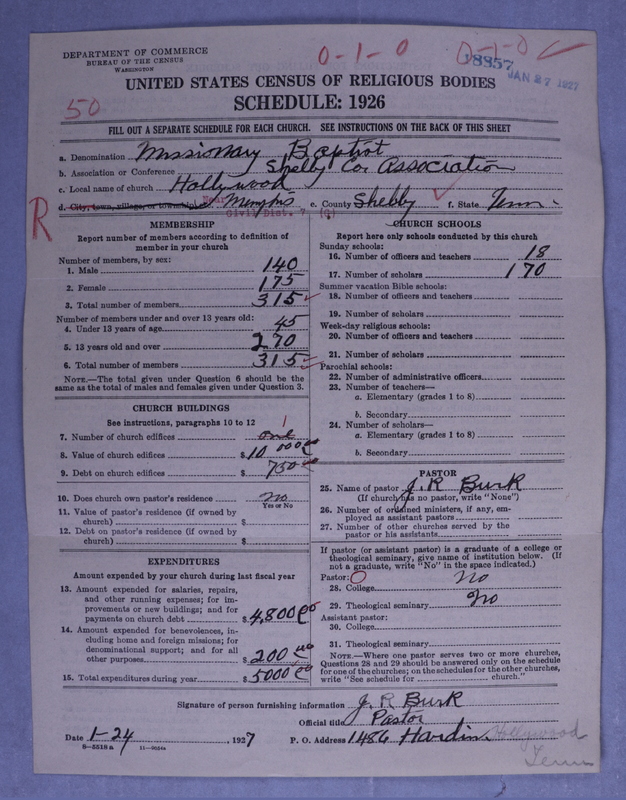 DEPARTMENT OF COMMERCE
BUREAU OF THE CENSUS
WASHINGTON
0-1-0
0-1-0
18857
JAN 27 1927
50
UNITED STATES CENSUS OF RELIGIOUS BODIES
SCHEDULE: 1926
FILL OUT A SEPARATE SCHEDULE FOR EACH CHURCH. SEE INSTRUCTIONS ON THE BACK OF THIS SHEET
a. Denomination Missionary Baptist
b. Association or Conference Shelby Co. Association
c. Local name of church Hollywood
d. City, town, village, or township Near Memphis e. County Shelby f. State Tenn.
Civil Dist. 7 (Q)
R
MEMBERSHIP
Report number of members according to definition of
member in your church
Number of members, by sex:
1. Male 140
2. Female 175
3. Total number of members 315
Number of members under and over 13 years old:
4. Under 13 years of age 45
5. 13 years old and over 270
6. Total number of members 315
NOTE.—The total given under Question 6 should be
the same as the total of males and females given under Question 3.
CHURCH BUILDINGS
See instructions, paragraphs 10 to 12
7. Number of church edifices one 1
8. Value of church edifices $10 000 00
9. Debt on church edifices $750 00
10. Does church own pastor's residence no
Yes or No
11. Value of pastor's residence (if owned by
church) $
12. Debt on pastor's residence (if owned by
church) $
EXPENDITURES
Amount expended by your church during last fiscal year
13. Amount expended for salaries, repairs,
and other running expenses; for im-
provements or new buildings; and for
payments on church debt $4,800 00
14. Amount expended for benevolences, in-
cluding home and foreign missions; for
denominational support; and for all
other purposes $200 00
15. Total expenditures during year $5000 00
CHURCH SCHOOLS
Report here only schools conducted by this church
Sunday schools:
16. Number of officers and teachers 18
17. Number of scholars 170
Summer vacation Bible schools:
18. Number of officers and teachers
19. Number of scholars
Week-day religious schools:
20. Number of officers and teachers
21. Number of scholars
Parochial schools:
22. Number of administrative officers
23. Number of teachers—
a. Elementary (grades 1 to 8)
b. Secondary
24. Number of scholars—
a. Elementary (grades 1 to 8)
b. Secondary
PASTOR
25. Name of pastor J. R Burk
(If church has no pastor, write "None")
26. Number of ordained ministers, if any, em-
ployed as assistant pastors
27. Number of other churches served by the
pastor or his assistants
If pastor (or assistant pastor) is a graduate of a college or
theological seminary, give name of institution below. (If
not a graduate, write "No" in the space indicated.)
Pastor: O
28. College No
29. Theological seminary No
Assistant pastor:
30. College
31. Theological seminary
NOTE.—Where one pastor serves two or more churches,
Questions 28 and 29 should be answered only on the schedule
for one of the churches; on the schedules for the other churches,
write "See schedule for church."
Signature of person furnishing information J. R Burk
Official title Pastor
Date 1-24, 1927 P. O. Address 1486 Hardin Hollywood
Tenn
8-5518a 11-9054